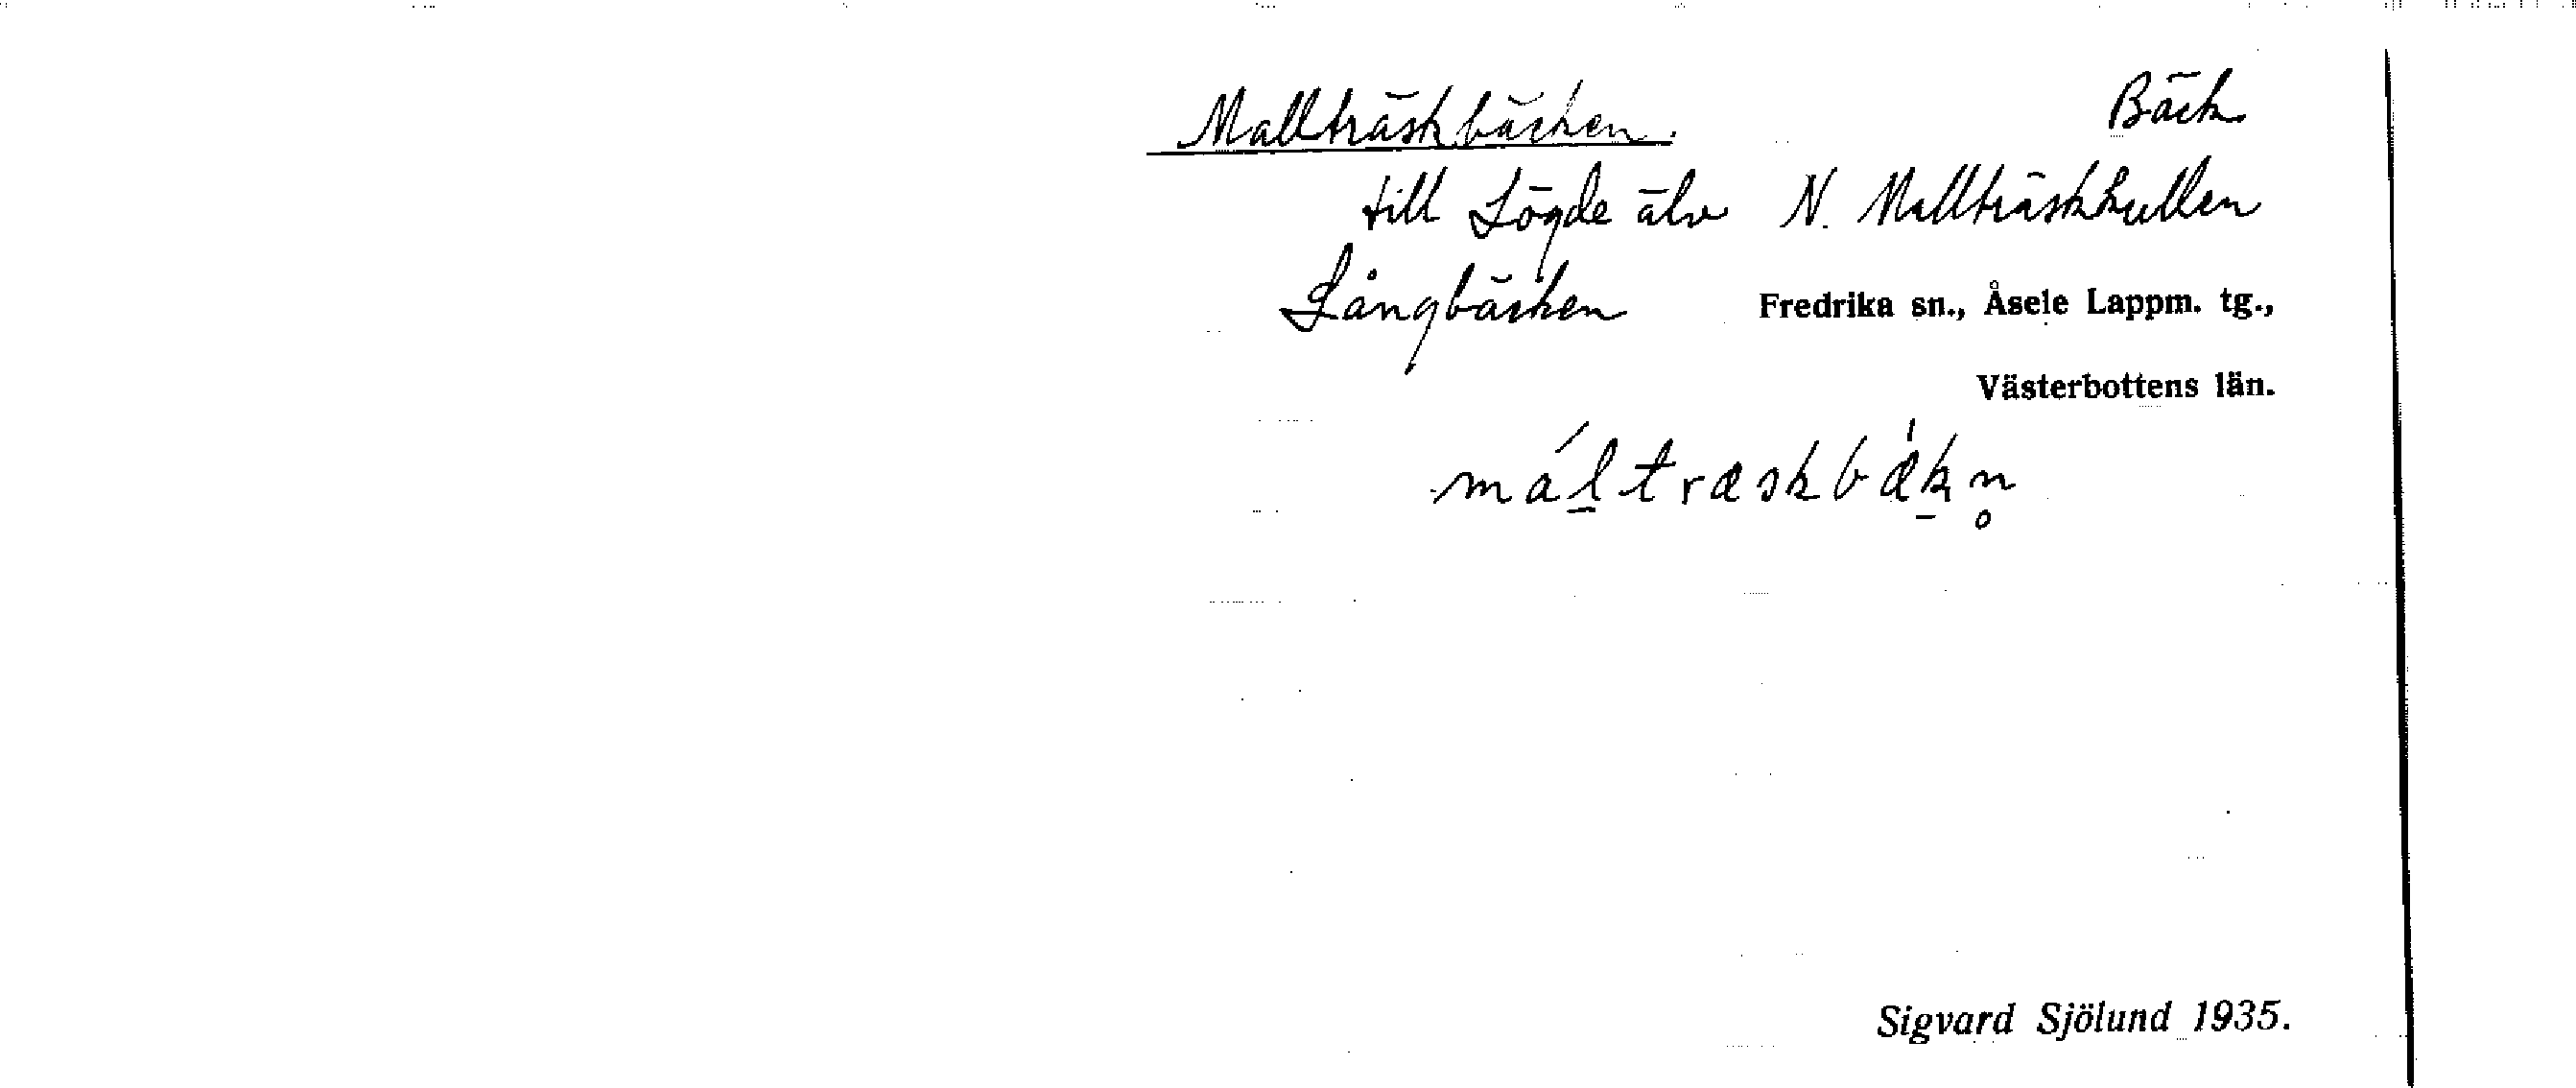 Mallträskbäcken. Bäck
till Lögde älv N. Mallträskkullen
Långbäcken Fredrika sn., Åsele Lappm. tg.,
Västerbottens län.
mál̲træskbæ̀k̲n̥
Sigvard Sjölund 1935.